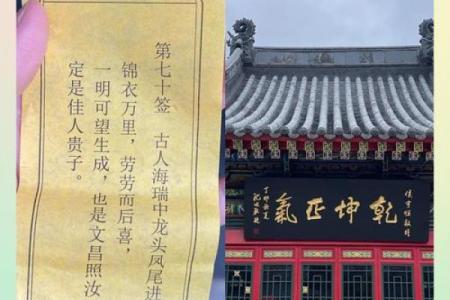 第七十签　古人海瑞中龙头凤尾进
锦衣万里，劳劳而后喜，
一明可望生成，也是文昌照汝
定是佳人贵子。
乾坤正氣